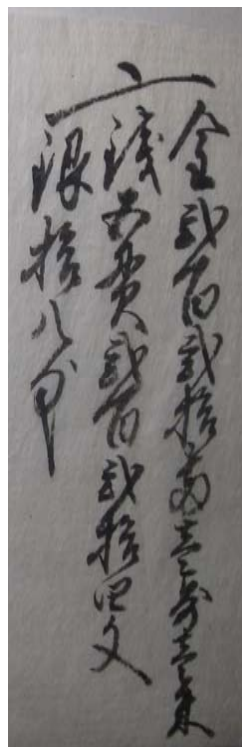 金弐百弐拾両壱歩壱朱
銭五貫弐百弐拾四文
銀拾八匁